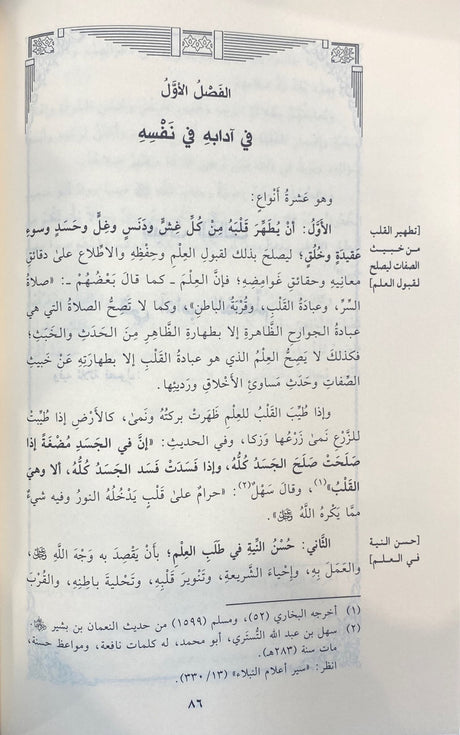 الفَصْلُ الأوَّلُ
في آدابهِ في نَفْسِهِ
وهو عَشرةُ أنْواعٍ:
الأوَّلُ: أنْ يُطَهِّرَ قَلْبَهُ مِنْ كُلِّ غِشٍّ ودَنَسٍ وغِلٍّ وحَسَدٍ وسوءِ
عقيدَةٍ وخُلُقٍ؛ ليصلحَ بذلك لقبولِ العِلْمِ وحِفْظِهِ والاطّلاعِ علىٰ دقائقِ
معانيهِ وحقائقِ غوامِضِهِ؛ فإنَّ العِلْمَ ـ كما قالَ بَعْضُهُمْ ـ: «صلاةُ
السِّرِّ، وعبادَةُ القَلْبِ، وقُرْبَةُ الباطنِ»، وكما لا تَصِحُّ الصلاةُ التي هي
عبادةُ الجوارحِ الظّاهرةِ إلا بطهارةِ الظّاهرِ مِنَ الحَدَثِ والخَبَثِ؛
فكذلكَ لا يَصِحُّ العِلمُ الذي هو عبادةُ القَلْبِ إلا بطهارَتِهِ عَنْ خَبيثِ
الصِّفاتِ وحَدَثِ مَساوئِ الأخْلاقِ ورَديئِها.
وإذا طُيِّبَ القَلْبُ للعِلمِ ظَهَرَتْ بركتُهُ ونَمىٰ، كالأرْضِ إذا طُيِّبَتْ
للزَّرْعِ نَمىٰ زَرْعُها وزَكا، وفي الحديثِ: «إنَّ في الجَسَدِ مُضْغَةً إذا
صَلَحَتْ صَلَحَ الجَسَدُ كُلُّهُ، وإذا فَسَدَتْ فَسَدَ الجَسَدُ كُلُّهُ، ألا وهيَ
القَلْبُ»(١)، وقالَ سَهْلٌ(٢): «حرامٌ علىٰ قَلْبٍ يَدْخُلُهُ النورُ وفيه شيءٌ
ممّا يَكْرهُ اللَّهُ ﷻ».
الثّاني: حُسْنُ النِّيةِ في طَلَبِ العِلمِ؛ بأنْ يَقْصِدَ به وَجْهَ اللَّهِ ﷻ،
والعَمَلَ بِهِ، وإحياءَ الشَّريعةِ، وتَنْويرَ قَلْبِهِ، وتَحْليةَ باطِنِهِ، والقُرْبَ
[تطهير القلب
من خبيث
الصفات ليصلح
لقبول العلم]
[حسن النية
في العلم]
(١) أخرجه البخاري (٥٢)، ومسلم (١٥٩٩) من حديث النعمان بن بشير ﵁.
(٢) سهل بن عبد الله التُّستَري، أبو محمد، له كلمات نافعة، ومواعظ حسنة،
مات سنة (٢٨٣هـ).
انظر: «سير أعلام النبلاء» (١٣/ ٣٣٠).
٨٦